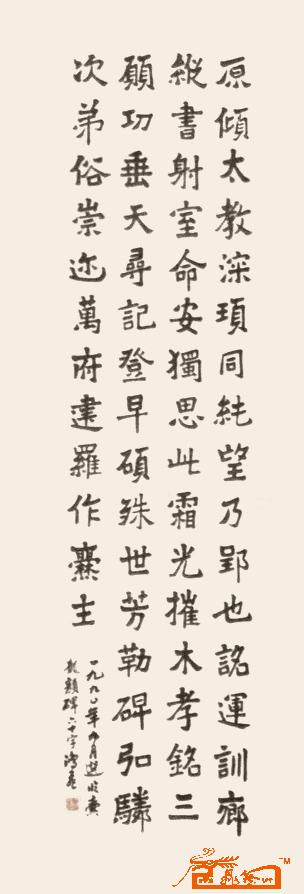 原傾太教深項同純望乃郢也詺運訓廊
縱書射室命安獨思此霜光摧木孝銘三
願功垂天尋記登早碩殊世芳勒碑弘驎
次弟俗崇迹萬府建羅作爨主
一九九〇年九月選臨爨
龍顏碑六十字